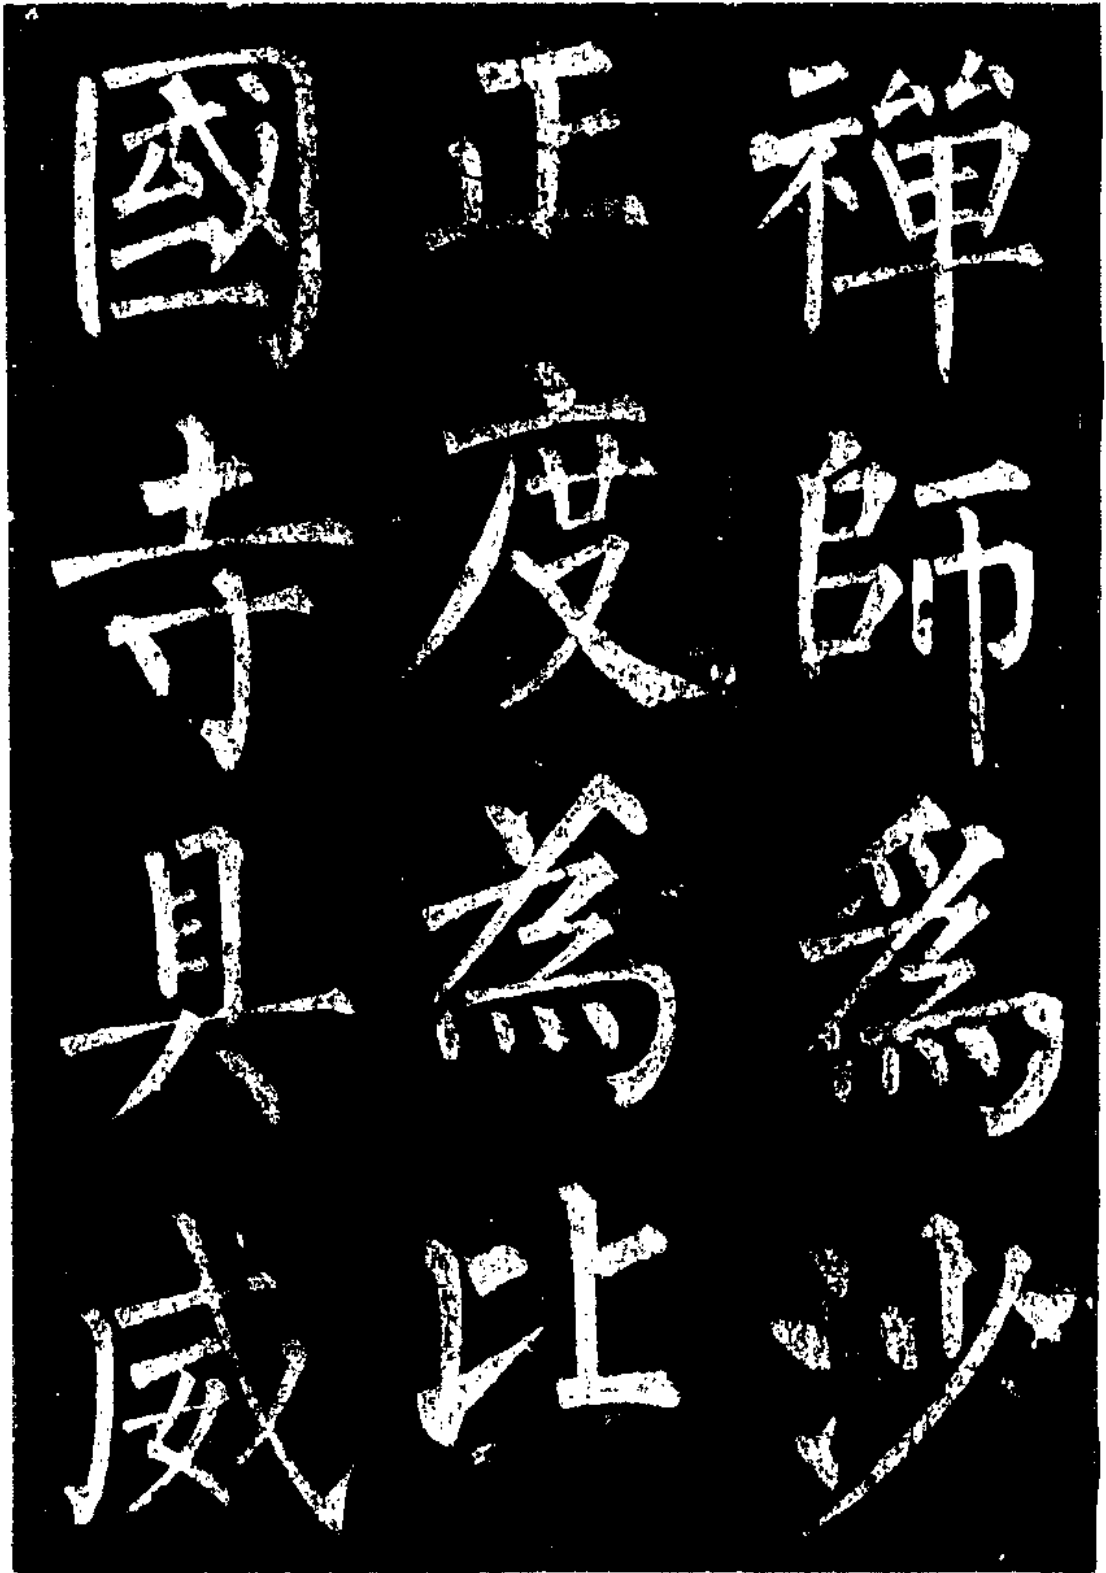 禪師爲沙
正度為比
國寺具威